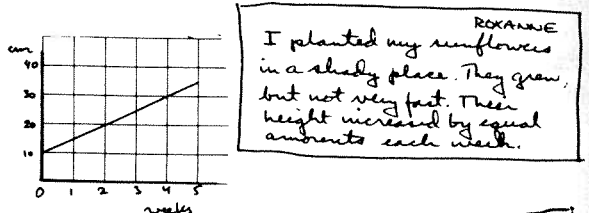 cm
40
30
20
10
0 1 2 3 4 5
weeks
ROXANNE
I planted my sunflowers
in a shady place. They grew,
but not very fast. Their
height increased by equal
amounts each week.